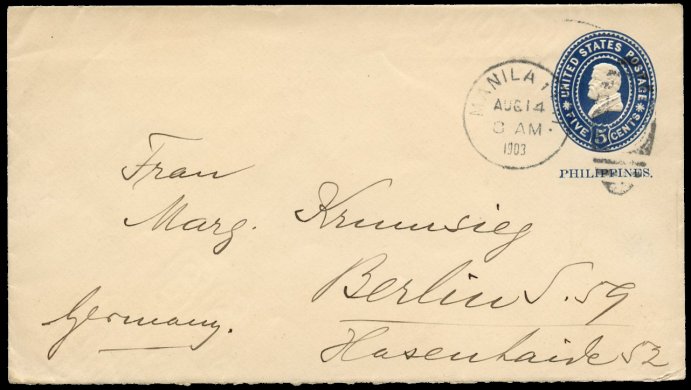 MANILA 1
AUG 14
8 AM
1903
UNITED STATES POSTAGE
FIVE 5 CENTS
PHILIPPINES.
Frau
Marg. Krumsieg
Berlin S. 59
Germany.
Hasenhaide 52